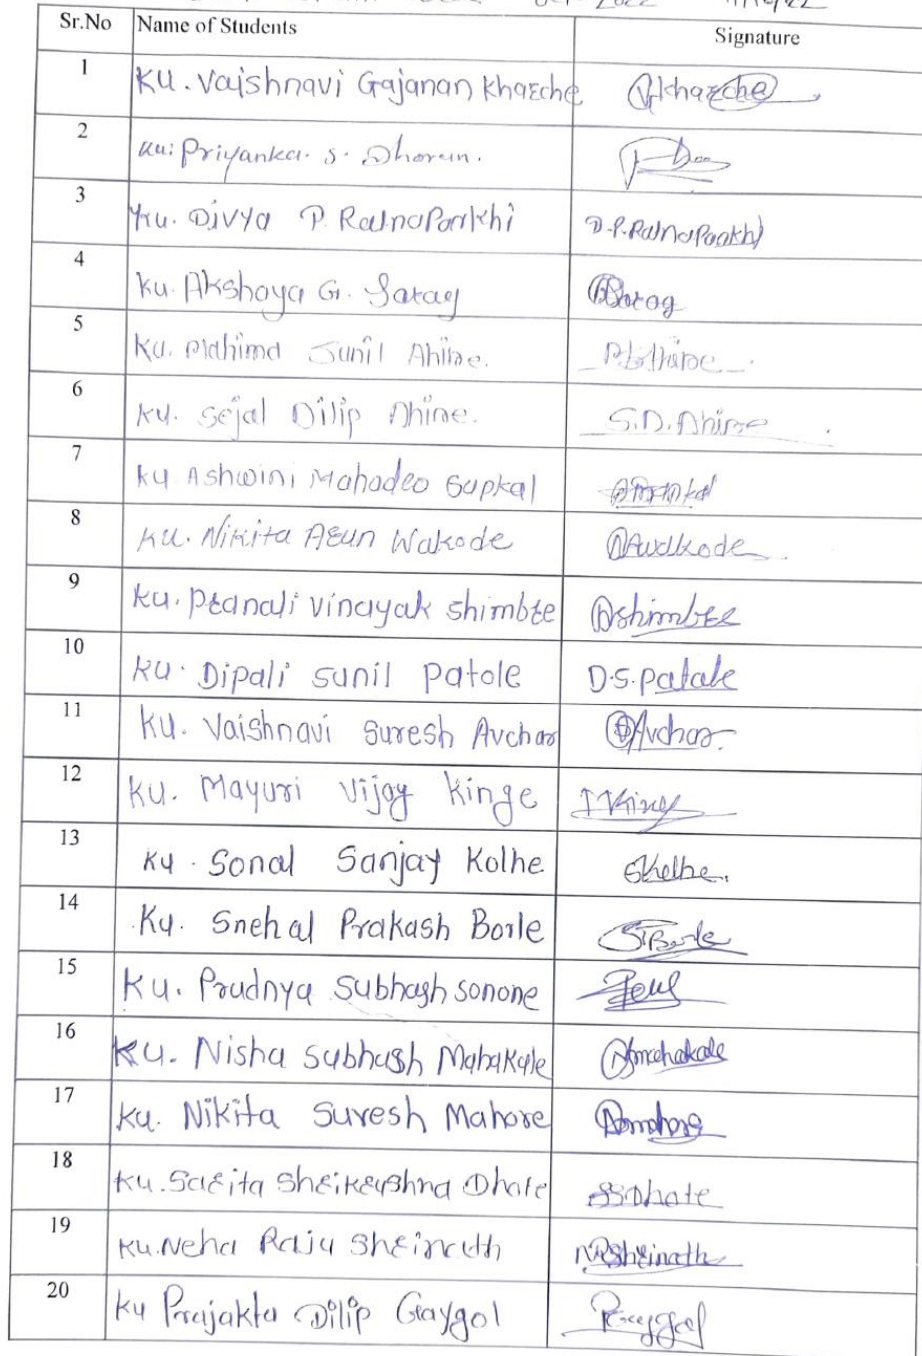 2022
Sr.No Name of Students Signature
1 Ku. Vaishnavi Gajanan Kharche Kharche
2 Ku. Priyanka. S. Dhoran.
3 Ku. Divya P. Ratnaparkhi D.P. Ratnaparkhi
4 Ku. Akshaya G. Sarag Sarag
5 Ku. Mahima Sunil Ahire.
6 Ku. Sejal Dilip Ahire. S.D. Ahire
7 Ku Ashwini Mahadeo Supkal
8 Ku. Nikita Arun Wakode
9 Ku. Pranali Vinayak Shimbre Shimbre
10 Ku. Dipali Sunil Patole D.S. Patole
11 Ku. Vaishnavi Suresh Avchar Avchar.
12 Ku. Mayuri Vijay Kinge Kinge
13 Ku. Sonal Sanjay Kolhe SKolhe.
14 Ku. Snehal Prakash Borle Borle
15 Ku. Pradnya Subhash Sonone
16 Ku. Nisha Subhash Mahakale Mahakale
17 Ku. Nikita Suresh Mahore
18 Ku. Sarita Shrikrushna Dhote SSDhote
19 Ku. Neha Raju Shrinath NRShrinath
20 Ku Prajakta Dilip Gaygol